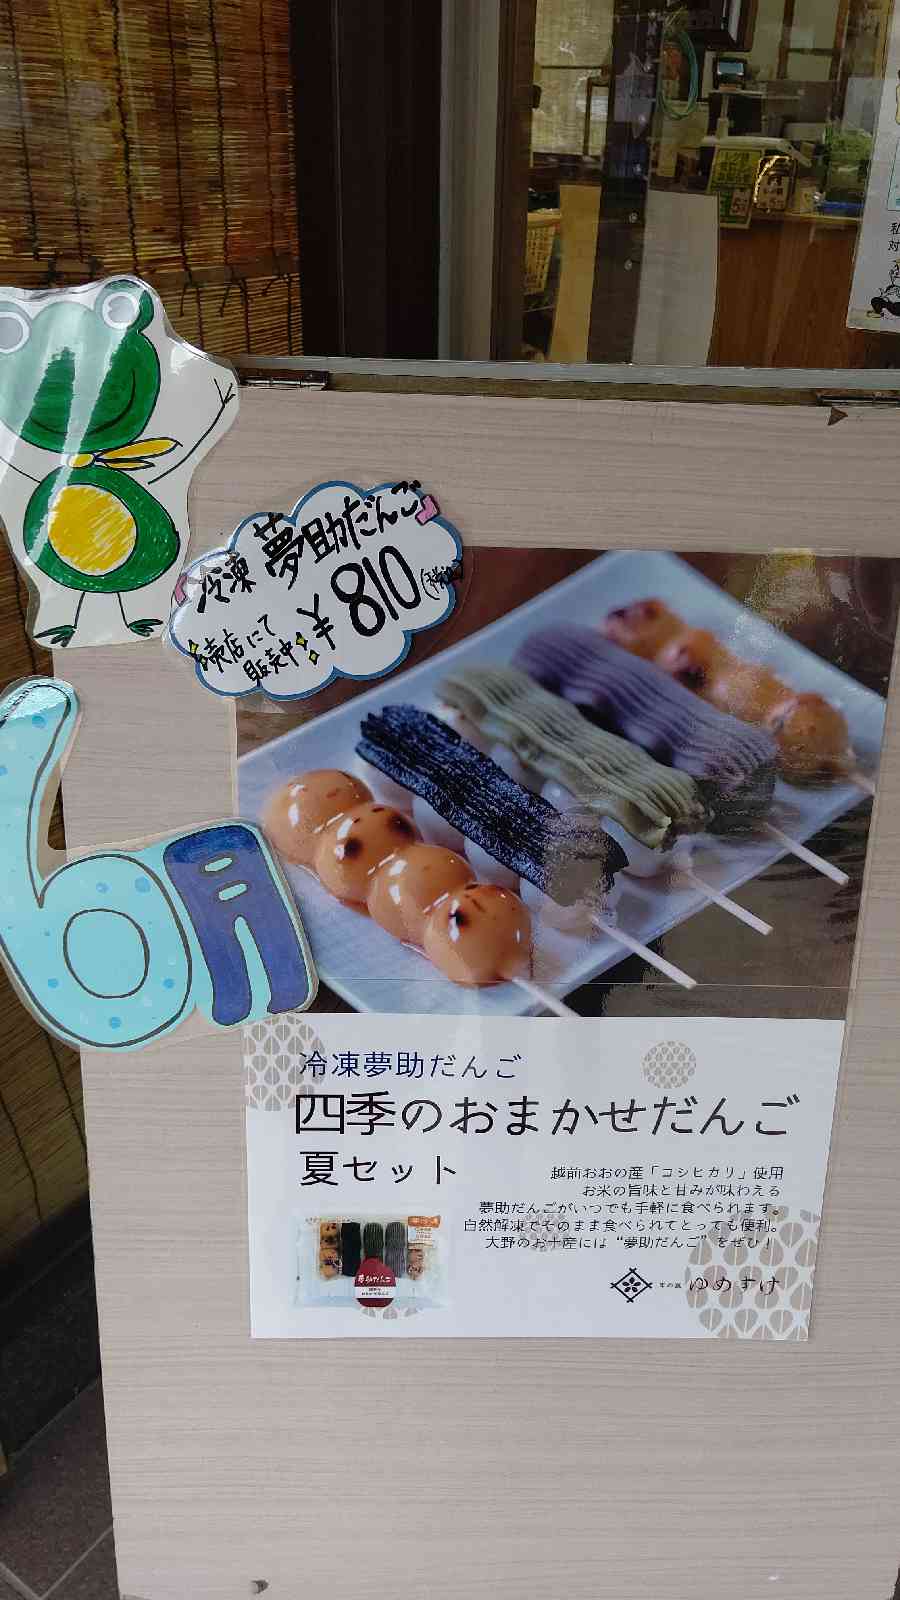 冷凍 夢助だんご
¥810(税込)
売店にて
販売中
6月
冷凍夢助だんご
四季のおまかせだんご
夏セット
越前おおの産「コシヒカリ」使用
お米の旨味と甘みが味わえる
夢助だんごがいつでも手軽に食べられます。
自然解凍でそのまま食べられてとっても便利。
大野のお土産には“夢助だんご”をぜひ！
夢助だんご
ゆめすけ
私
対